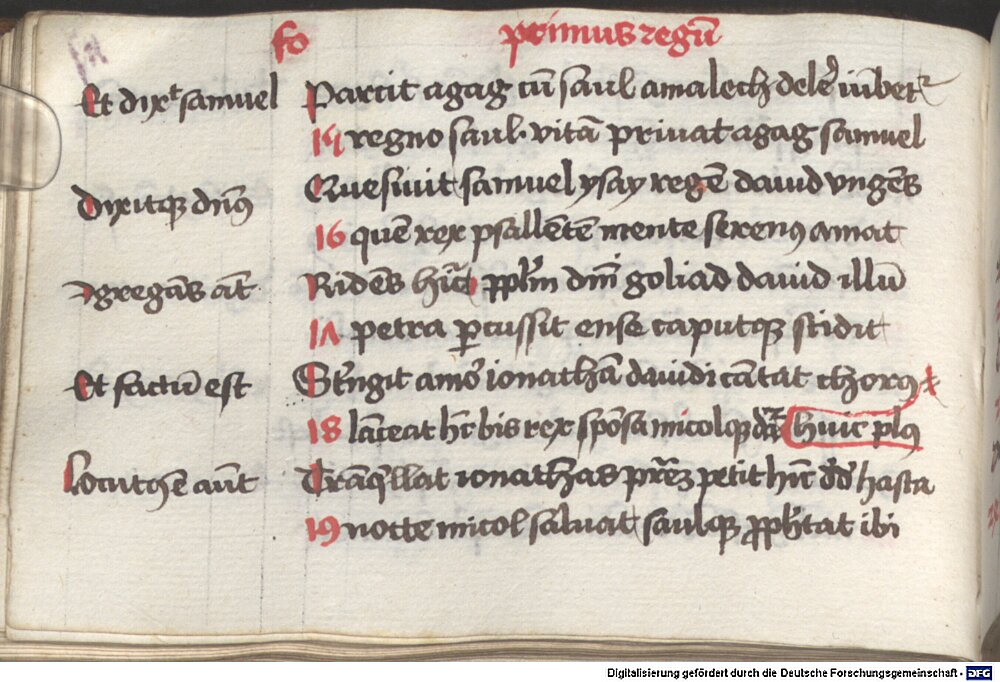 fo primus regū
Et dixᵗ samuel Parcit agag cū saul amalech delē iubetᵣ
15 regno saul · vitā priuat agag samuel
Dixitqꝫ dn̄s Quesiuit samuel ysay regē dauid vngēs
16 quē rex psallētē mente serenꝯ amat
Agregās at̄ Ridēs goliad dauid illū
17 petra ꝑcussit ense caputqꝫ scidit
Et factū est Strīgit amor ionathā dauidi cātat chorꝯ
18 lāceat hc̄ bis rex spōsa micolqꝫ dat̄ huic plꝯ
Locutꝯ ē aūt ionathas petit hūc dd̄ hasta
19 nocte micol saluat saulqꝫ ꝓph̄tat ibi
Digitalisierung gefördert durch die Deutsche Forschungsgemeinschaft - DFG